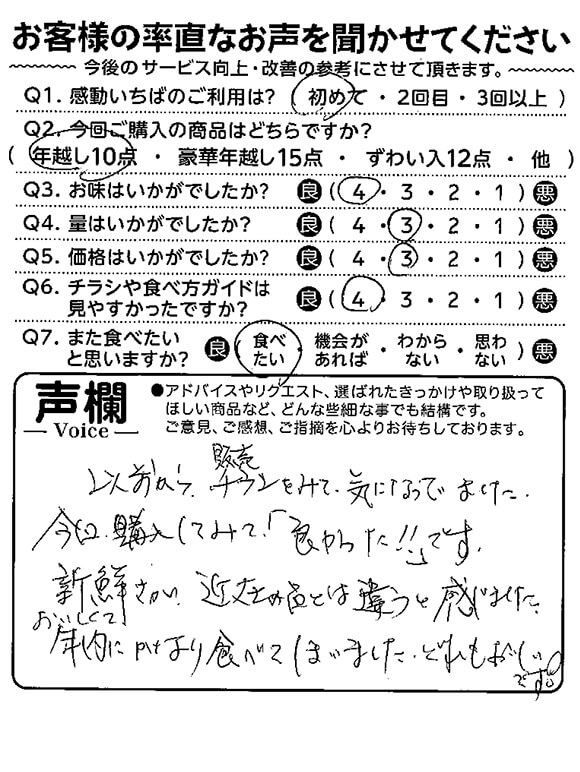 お客様の率直なお声を聞かせてください
今後のサービス向上・改善の参考にさせて頂きます。
Q1. 感動いちばのご利用は? ( 初めて ・ 2回目 ・ 3回以上 )
Q2. 今回ご購入の商品はどちらですか?
( 年越し10点 ・ 豪華年越し15点 ・ ずわい入12点 ・ 他 )
Q3. お味はいかがでしたか? 良 ( 4 ・ 3 ・ 2 ・ 1 ) 悪
Q4. 量はいかがでしたか? 良 ( 4 ・ 3 ・ 2 ・ 1 ) 悪
Q5. 価格はいかがでしたか? 良 ( 4 ・ 3 ・ 2 ・ 1 ) 悪
Q6. チラシや食べ方ガイドは
見やすかったですか? 良 ( 4 ・ 3 ・ 2 ・ 1 ) 悪
Q7. また食べたい
と思いますか? 良 ( 食べたい ・ 機会があれば ・ わからない ・ 思わない ) 悪
声欄
Voice
●アドバイスやリクエスト、選ばれたきっかけや取り扱って
ほしい商品など、どんな些細な事でも結構です。
ご意見、ご感想、ご指摘を心よりお待ちしております。
販売
以前から、チラシをみて、気になってました。
今回、購入してみて、「良かった!!」です。
新鮮さが、近在の店とは違うと感じました。
おいしくて
年内に食べてしまいました。どれもおいしい
です。